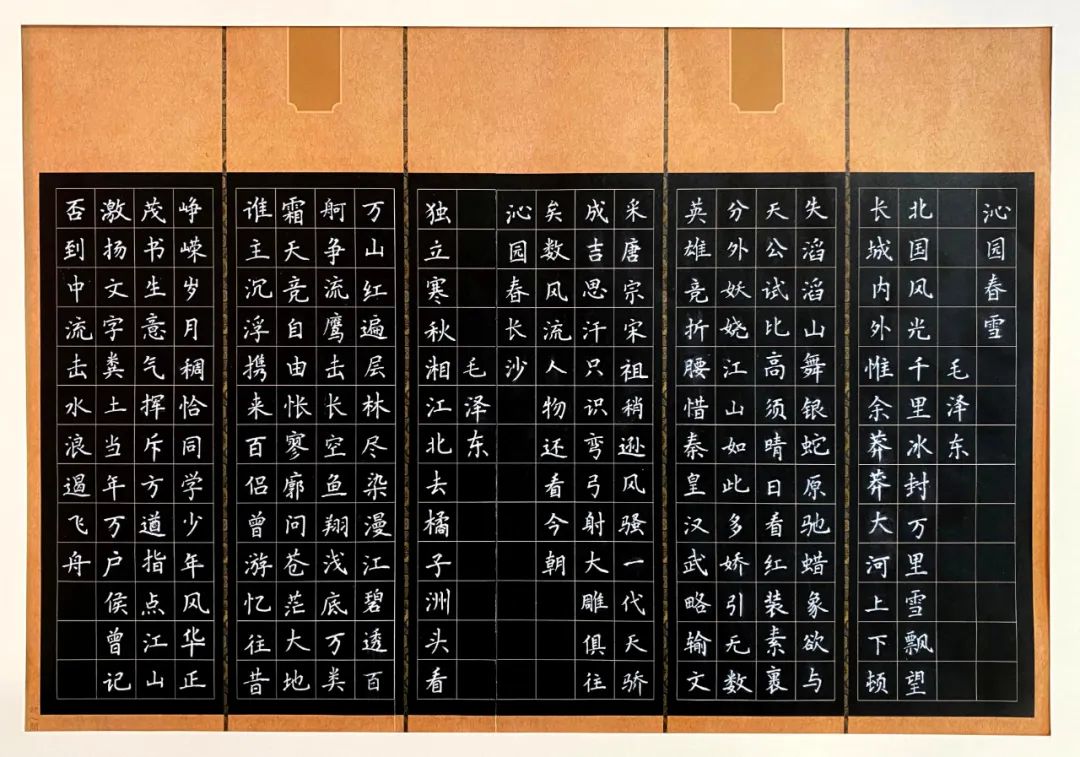 沁园春雪
毛泽东
北国风光千里冰封万里雪飘望
长城内外惟余莽莽大河上下顿
失滔滔山舞银蛇原驰蜡象欲与
天公试比高须晴日看红装素裹
分外妖娆江山如此多娇引无数
英雄竞折腰惜秦皇汉武略输文
采唐宗宋祖稍逊风骚一代天骄
成吉思汗只识弯弓射大雕俱往
矣数风流人物还看今朝
沁园春长沙
毛泽东
独立寒秋湘江北去橘子洲头看
万山红遍层林尽染漫江碧透百
舸争流鹰击长空鱼翔浅底万类
霜天竞自由怅寥廓问苍茫大地
谁主沉浮携来百侣曾游忆往昔
峥嵘岁月稠恰同学少年风华正
茂书生意气挥斥方遒指点江山
激扬文字粪土当年万户侯曾记
否到中流击水浪遏飞舟